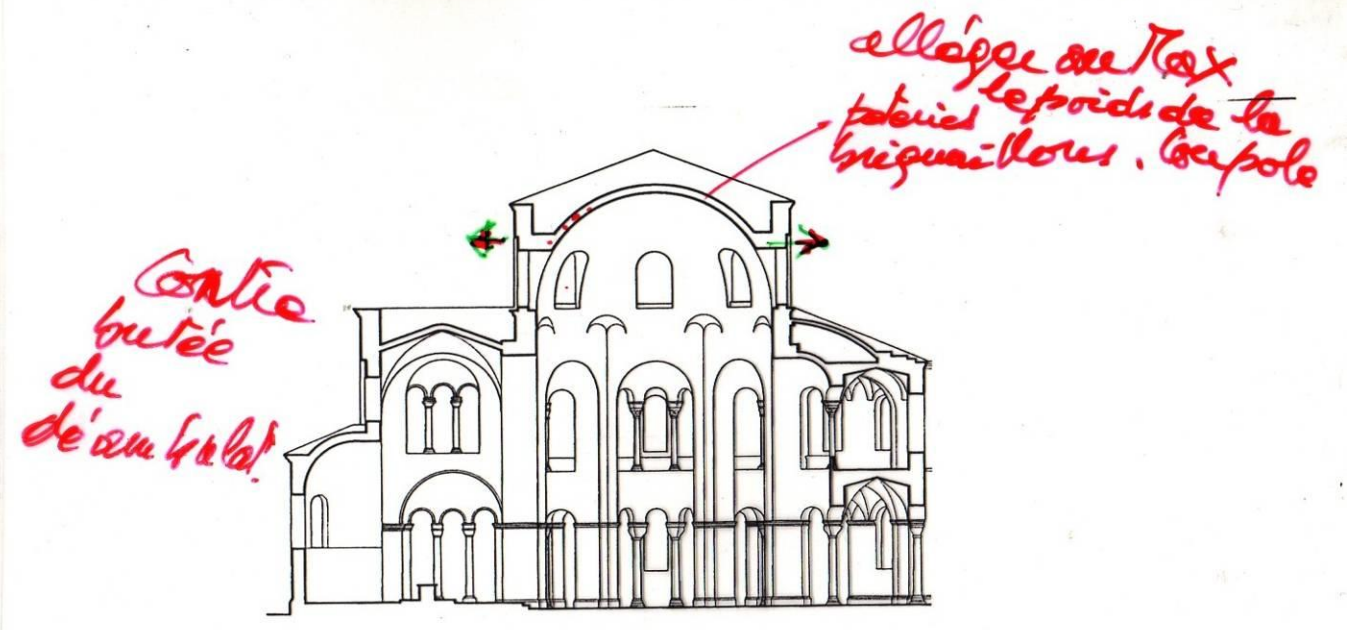 alléger au Max
le poids de la
poteries
briquaillons. Coupole
Contre
butée
du
déambulat.